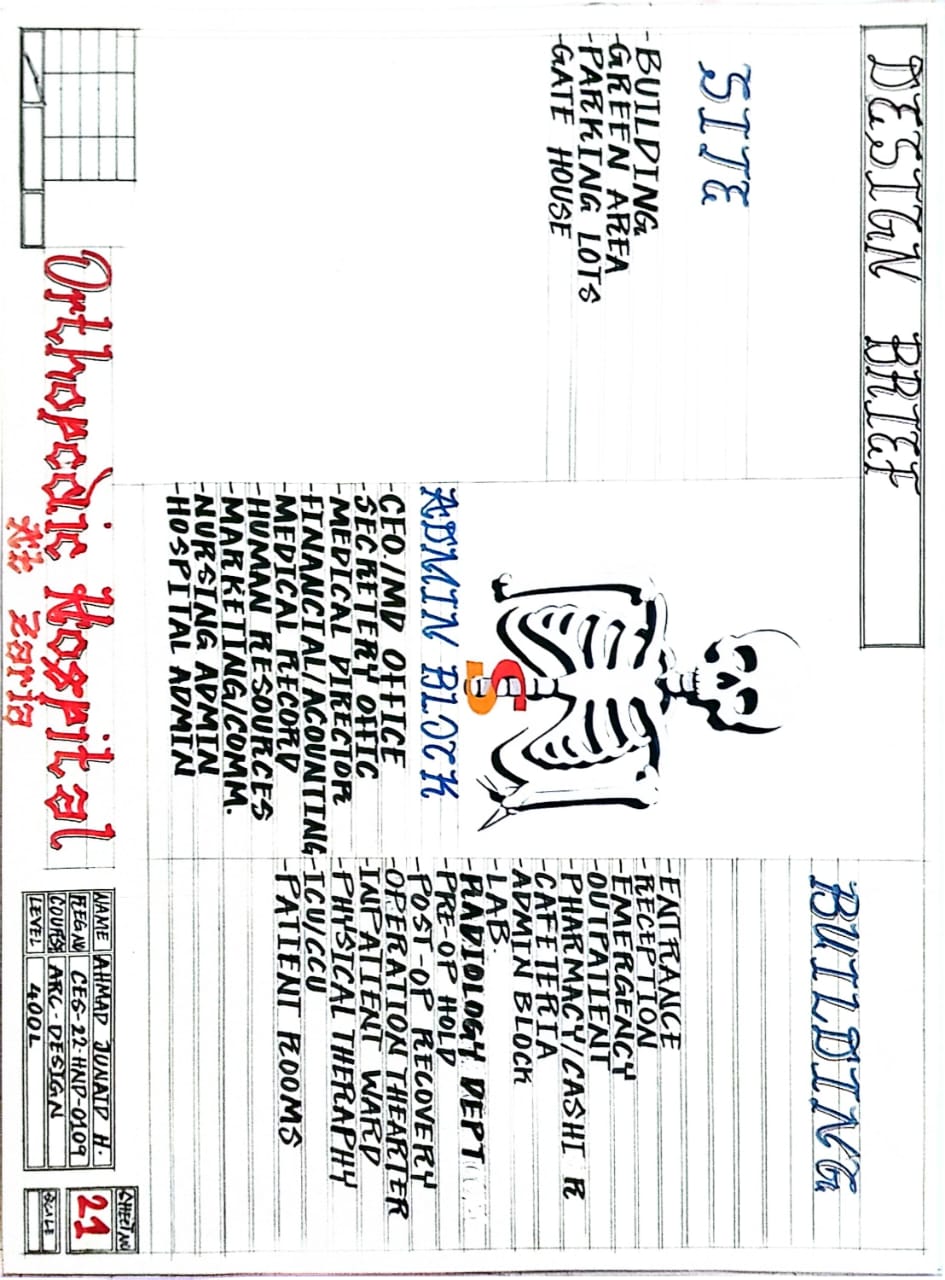 DESIGN BRIEF
SITE
-BUILDING
-GREEN AREA
-PARKING LOTS
-GATE HOUSE
ADMIN BLOCK
-CEO/MD OFFICE
-SECRETERY OFFIC
-MEDICAL DIRECTOR
-FINANCIAL/ACOUNTING
-MEDICAL RECORD
-HUMAN RESOURCES
-MARKETING/COMM.
-NURSING ADMIN
-HOSPITAL ADMIN
BUILDING
-ENTRANCE
-RECEPTION
-EMERGENCY
-OUTPATIENT
-PHARMACY/CASHI R
-CAFETERIA
-ADMIN BLOCK
-LAB.
-RADIOLOGY DEPT
-PRE-OP HOLD
-POST-OP RECOVERY
-OPERATION THEARTER
-INPATIENT WARD
-PHYSICAL THERAPHY
-ICU/CCU
-PATIENT ROOMS
Orthopedic Hospital
Zaria
NAME AHMAD JUNAID H.
REG NO CES-22-HND-0109
COURSE ARC-DESIGN
LEVEL 400L
SHEET NO
21
SCALE